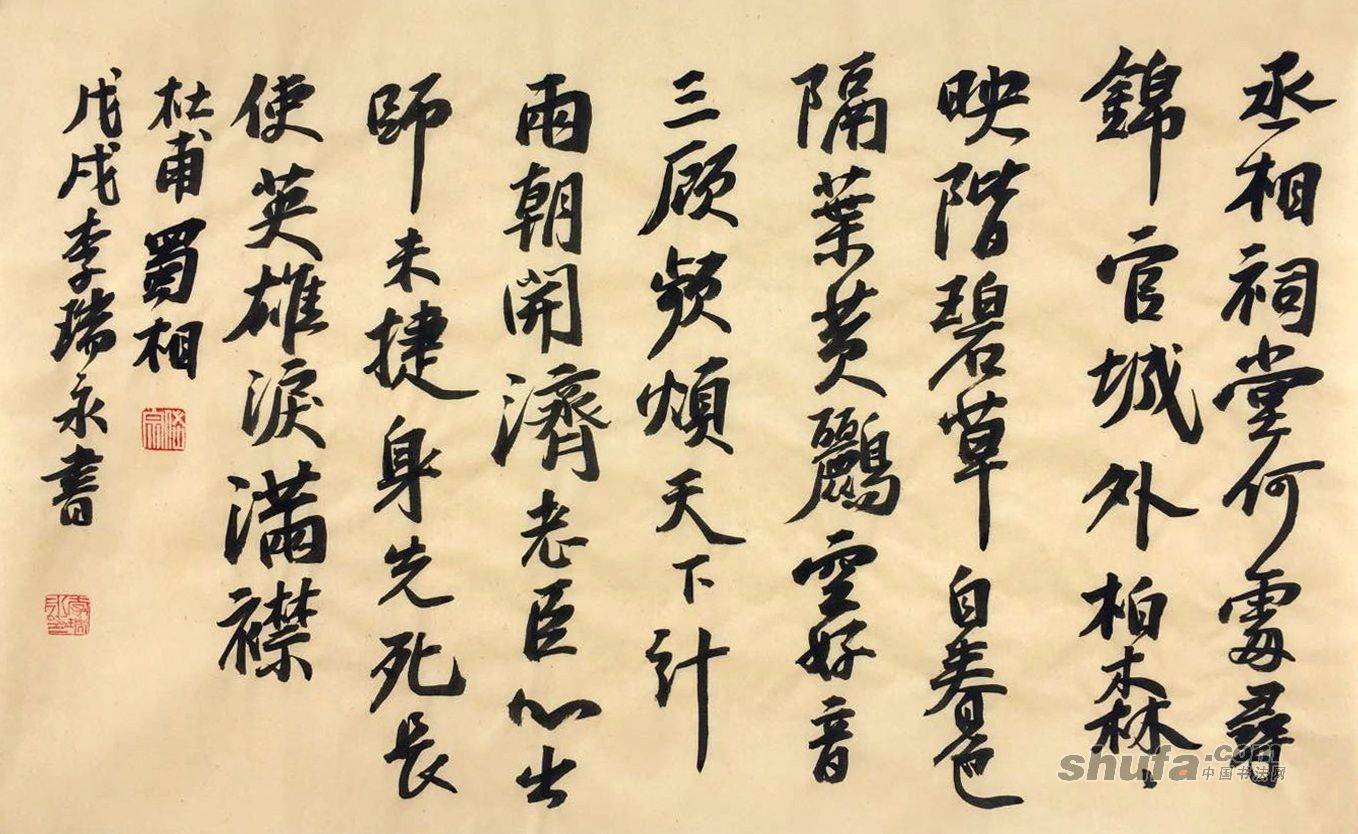 丞相祠堂何處尋
錦官城外柏森々
映階碧草自春色
隔葉黃鸝空好音
三顧頻煩天下計
兩朝開濟老臣心出
師未捷身先死長
使英雄淚滿襟
杜甫蜀相
戊戌李瑞永書
shufa.com
中国书法网